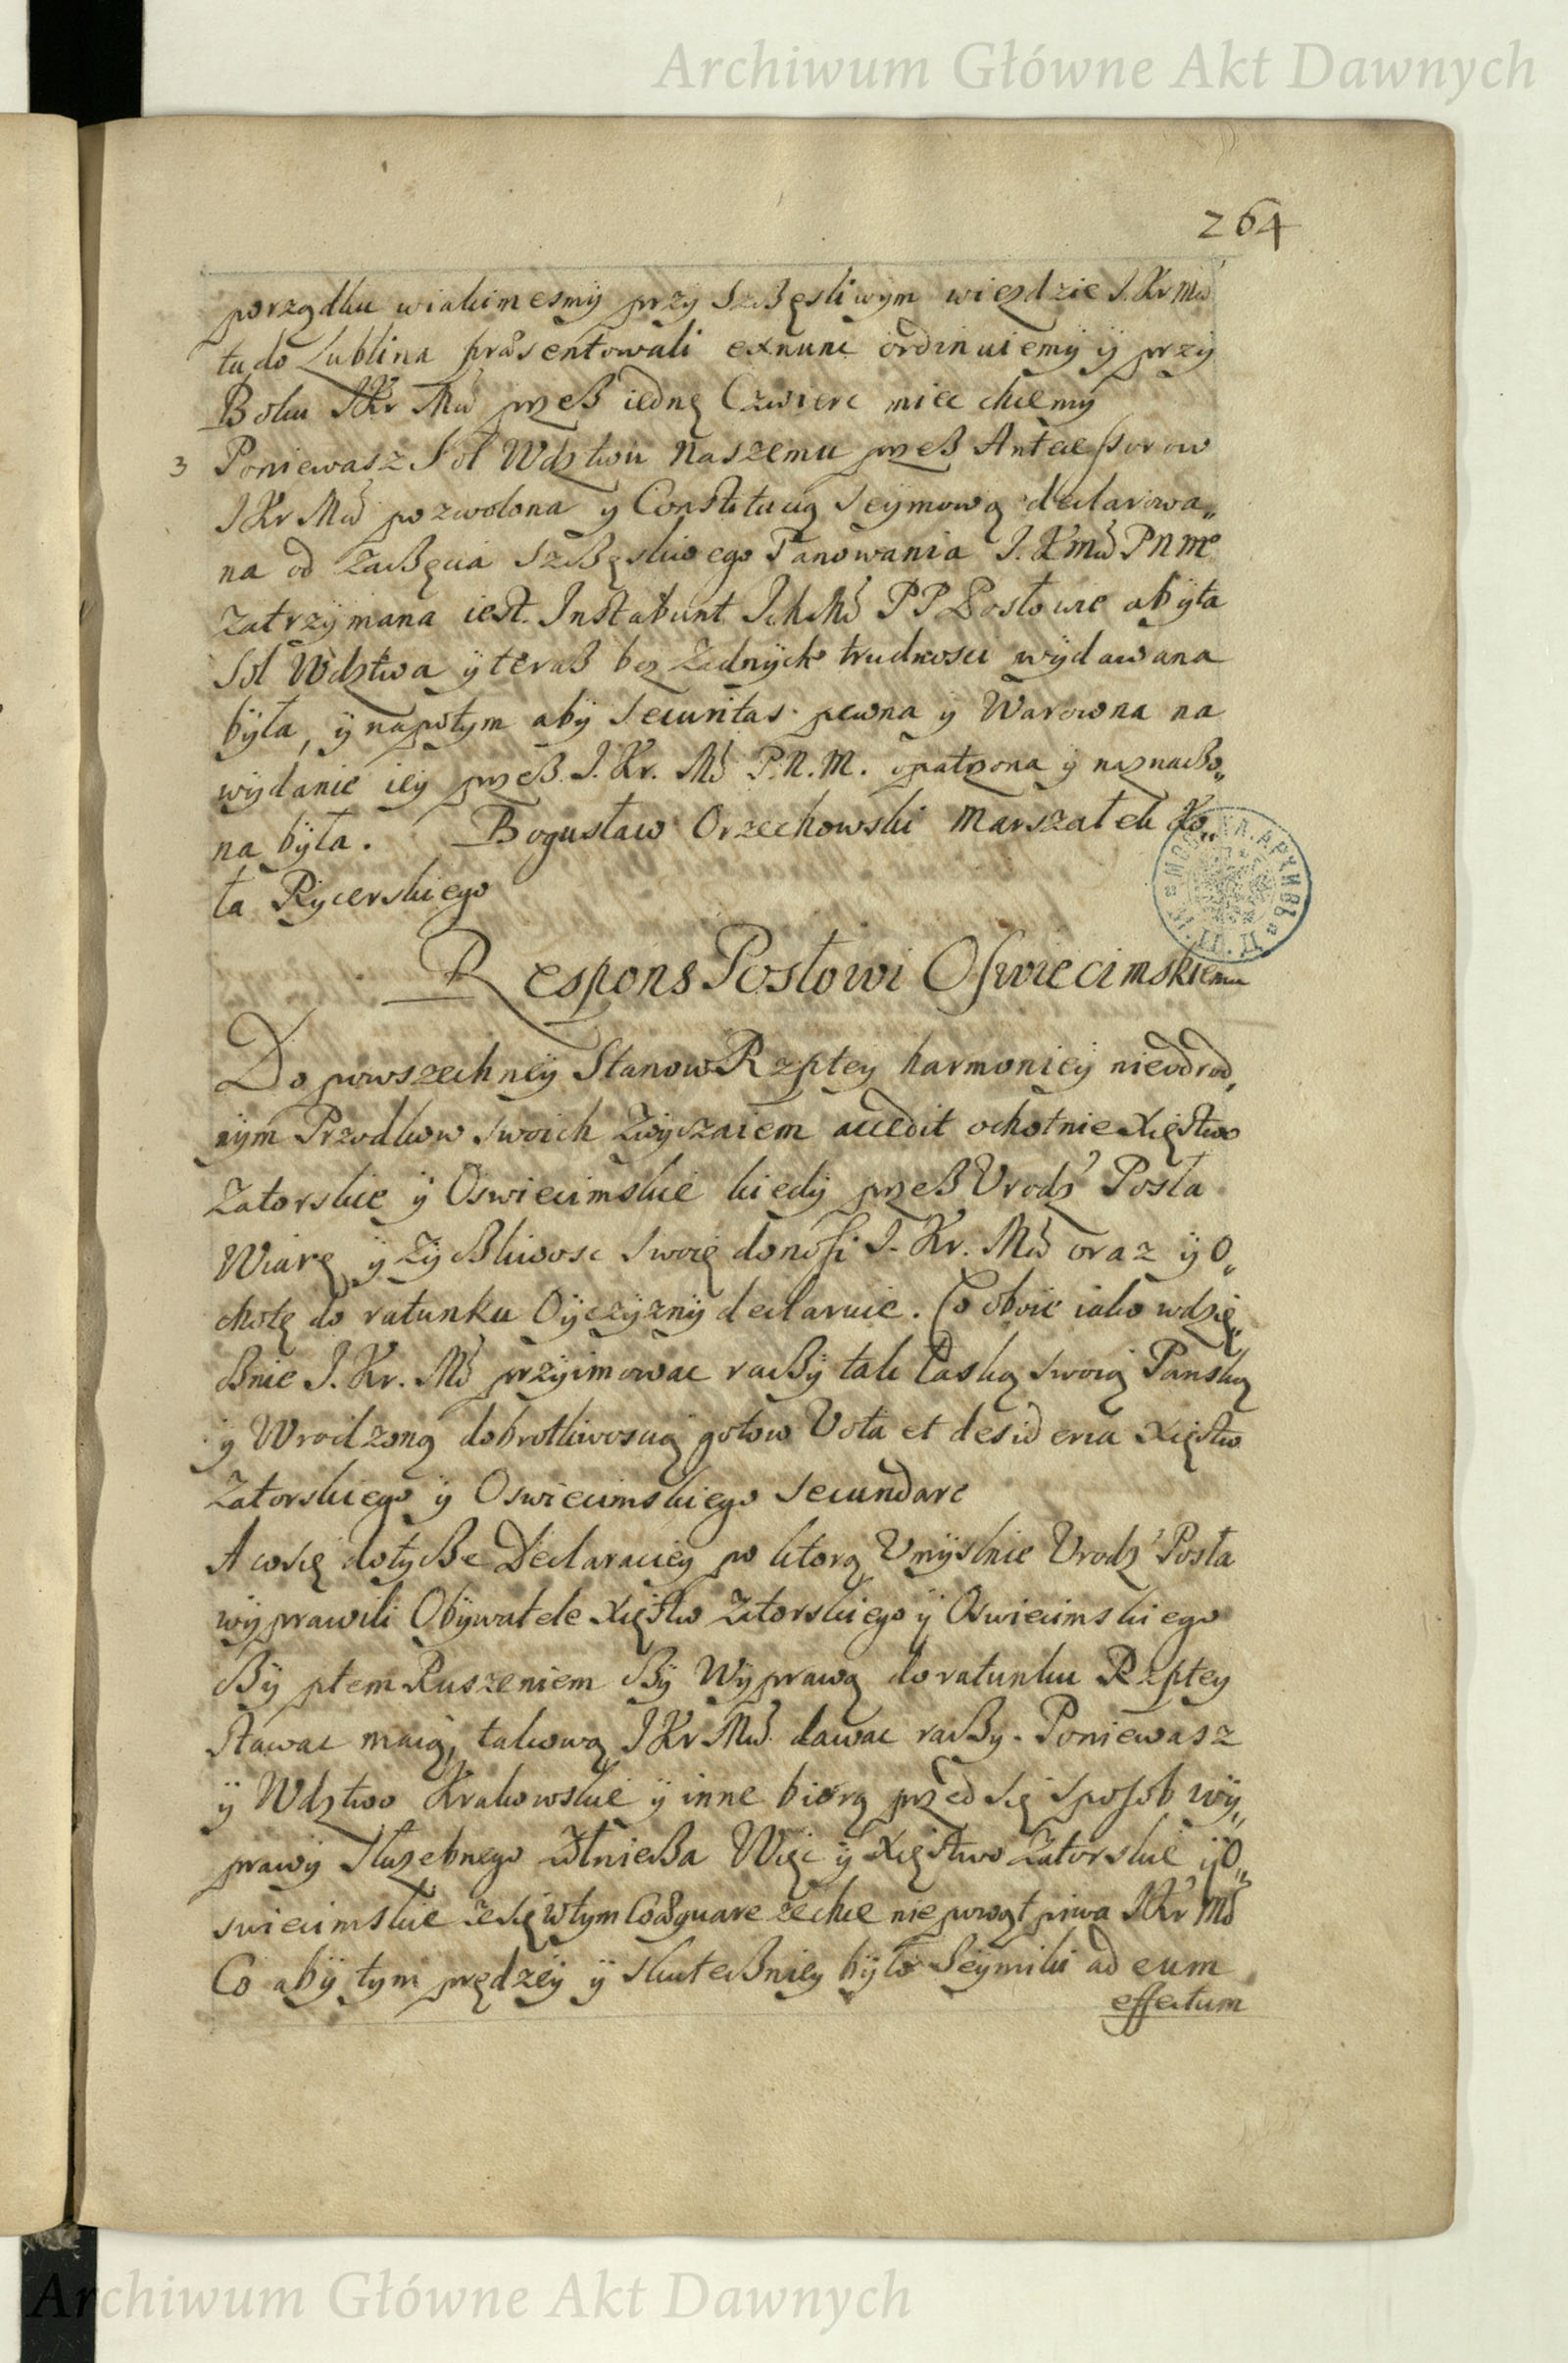 Archiwum Główne Akt Dawnych
264
porządku wiakimesmÿ przÿ Szczęsliwym wiezdzie J. Kr Mći
tu do Lublina præsentowali exnunc ordinuiemÿ ÿ przÿ
Boku JKr Mći przeß iednę Czwierc miec chcemÿ
3 Poniewasz Sol Wdztwu Naszemu przeß Antecessorow
JKr Mći pozwolona y Constitucią Seÿmową declarowa„
na od Zaczęcia Szczęsliwego Panowania J. K Mći P N Mº
Zatrzÿmana iest. Instabunt IchMć P P Posłowie abÿ ta
Sol Wdztwa ÿ teraß bez Zadnÿch trudnosci wÿdawana
bÿła, ÿ napotym abÿ Securitas pewna ÿ Warowna na
wÿdanie ieÿ przeß J. Kr. Mć P. N. M. opatrzona ÿ naznaczo„
na bÿła. Bogusław Orzechowski Marszałek Ko„
ła Rÿcerskiego
Respons Posłowi Oswiecimskiemu
Do powszechneÿ Stanow Rzptey harmonieÿ nieodrod„
nÿm Przodkow swoich Zwÿczaiem accedit ochotnie Xięstwo
Zatorskie ÿ Oswiecimskie kiedÿ przeß Urodz Posła
Wiarę ÿ Zÿczliwosc swoię donosi J. Kr. Mći oraz ÿ O„
chotę do ratunku Oÿczÿznÿ declaruie. Co oboie iako wdzię„
cznie J. Kr. Mć przÿimowac raczÿ tak Łaską swoią Panską
ÿ Wrodzoną dobrotliwoscią gotow Vota et desideria Xięstw
Zatorskiego ÿ Oswiecimskiego secundare
A co się dotÿcze Declaracieÿ po ktorą Umÿslnie Urodz Posła
wÿprawili Obÿwatele Xięstw Zatorskiego ÿ Oswiecimskiego
Czÿ płem Ruszeniem Czÿ Wÿprawą do ratunku Rzptey
Stawac maią, takową JKr Mć dawac raczÿ. Poniewasz
ÿ Wdztwo Krakowskie ÿ inne biorą przed się sposob wÿ„
prawÿ Słuzebnego Zołnierza Więc ÿ Xięstwo Zatorskie ÿ O„
swiecimskie ze się w tym Coæquare zechce nie powątpiwa JKr Mć
Co abÿ tym prędzeÿ ÿ skuteczniey bÿło Seÿmiki ad eum
effectum
Archiwum Główne Akt Dawnych